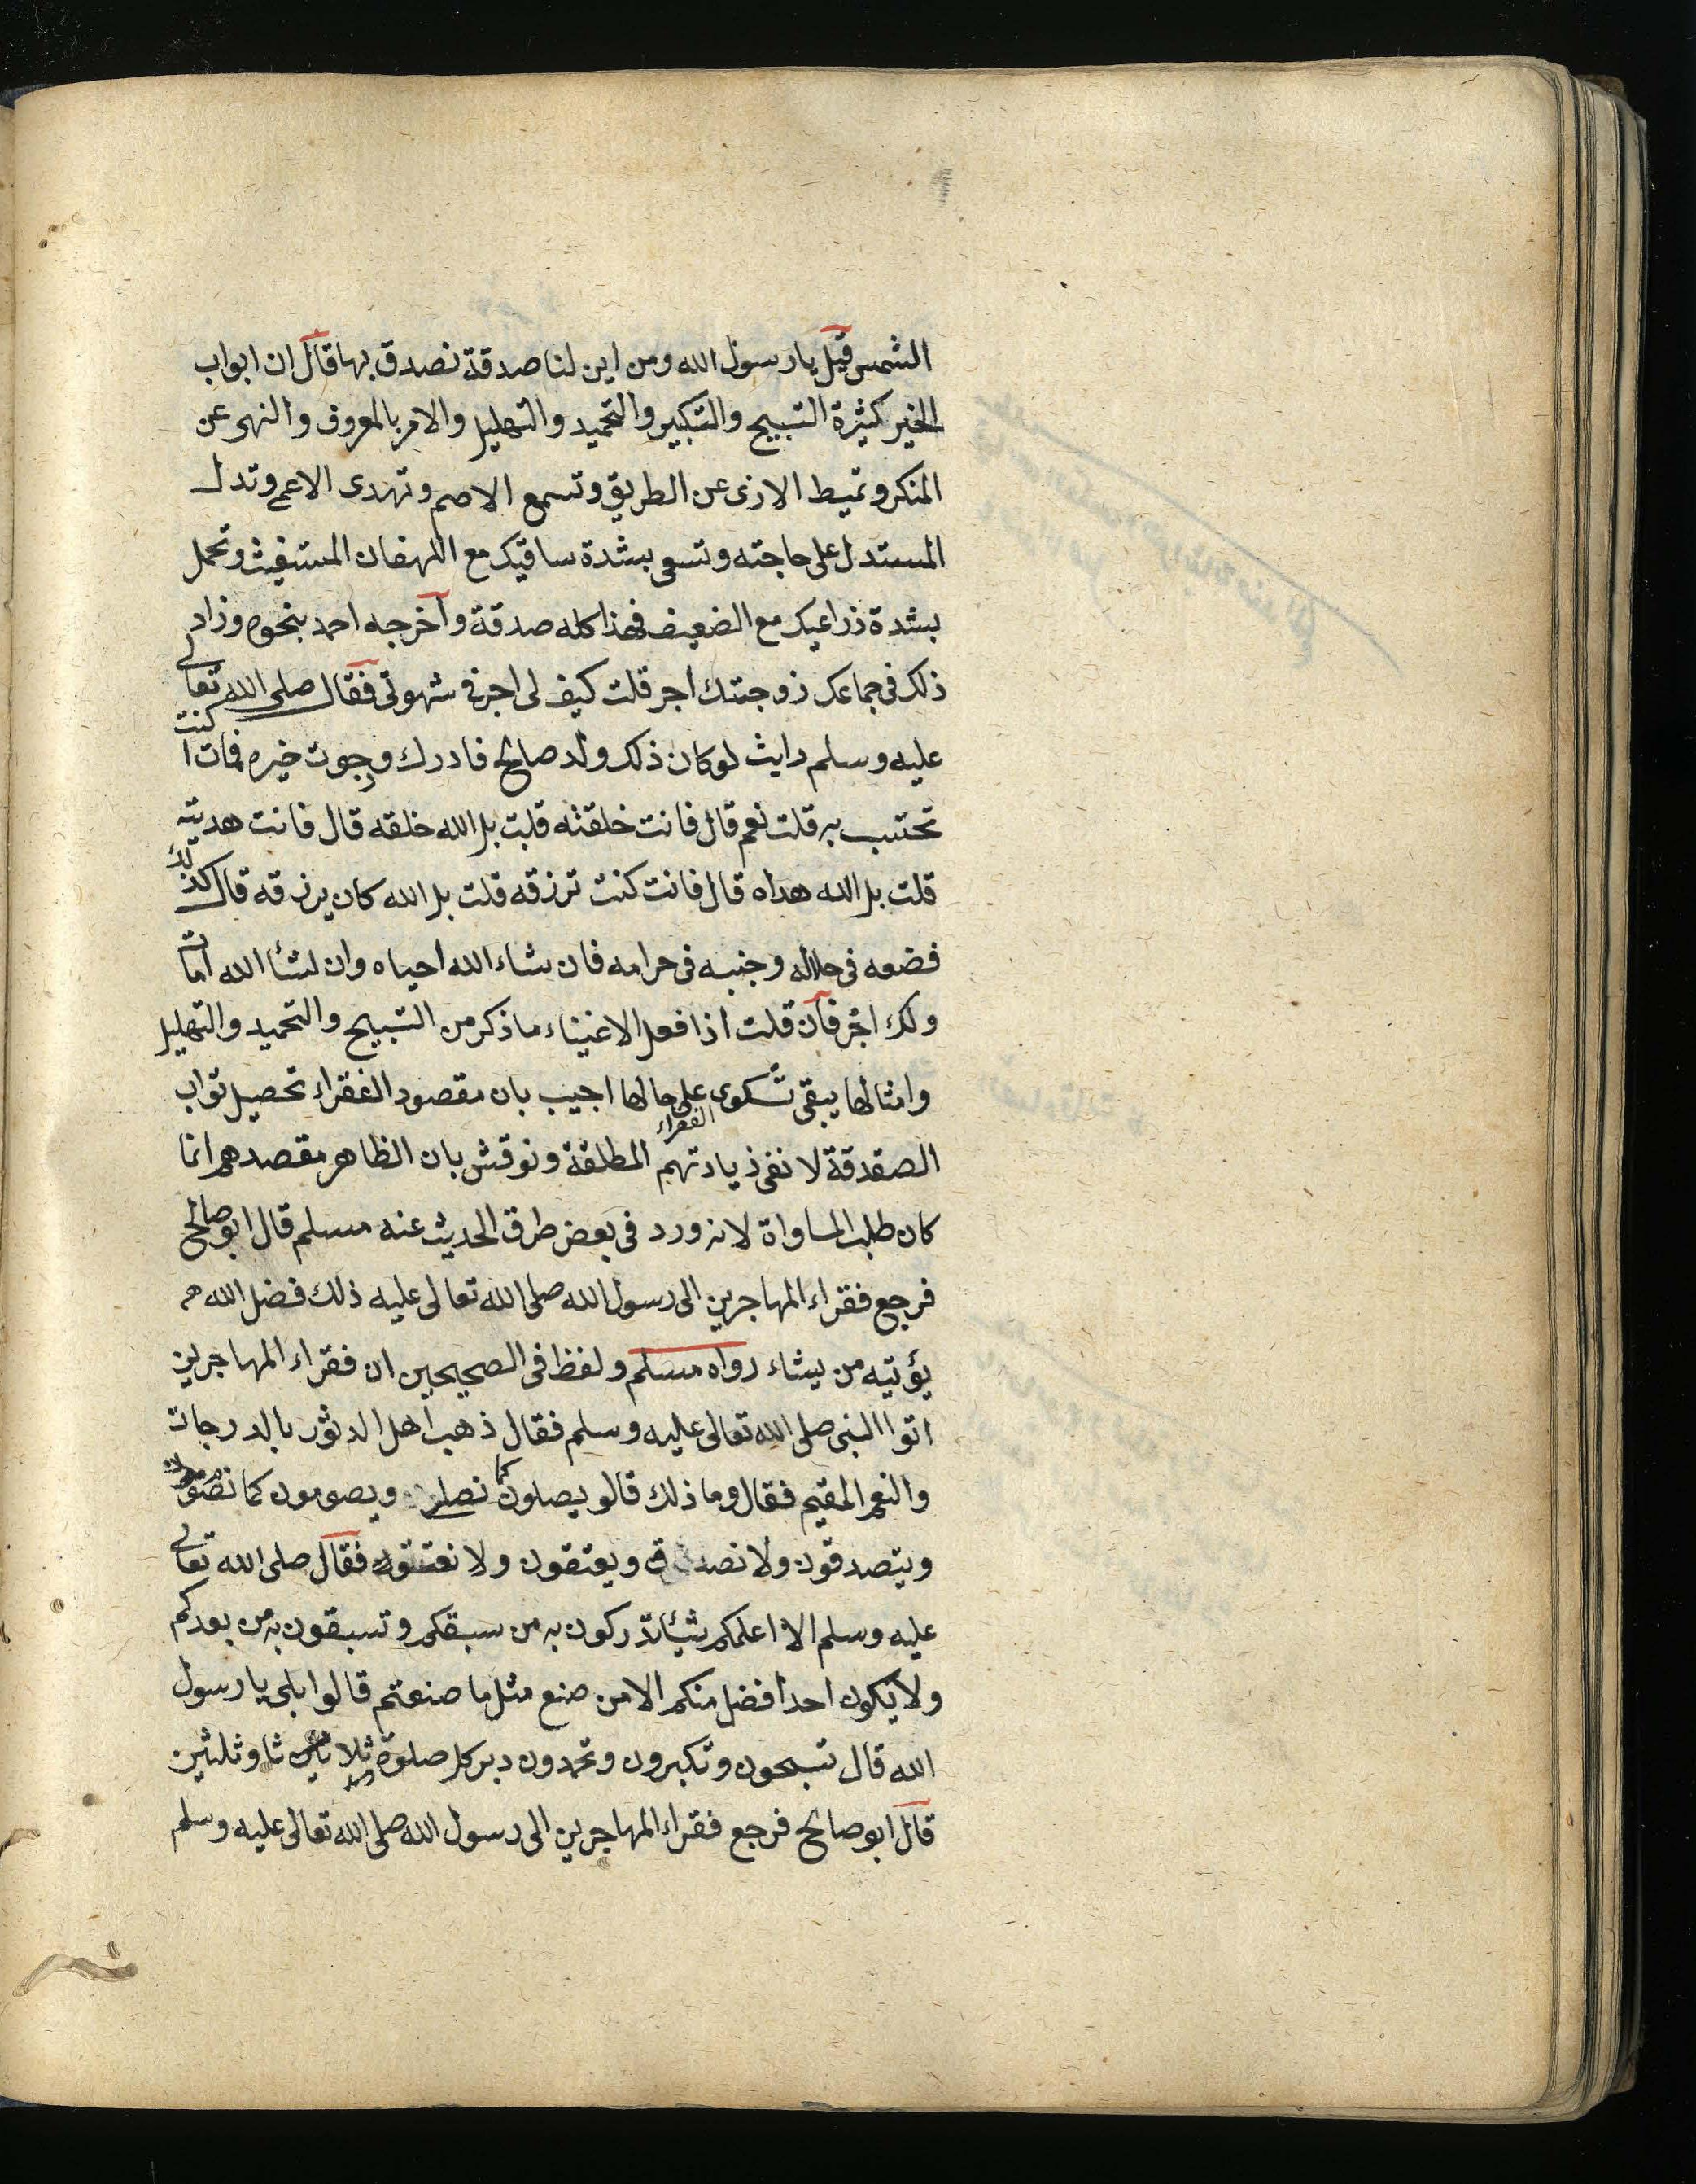 الشمس قيل يا رسول الله ومن اين لنا صدقة نصدق بها قال ان ابواب
الخير كثيرة التسبيح والتكبير والتحميد والتهليل والامر بالمعروف والنهى عن
المنكر وتميط الاذى عن الطريق وتسمع الاصم وتهدى الاعمى وتدل
المستدل على حاجته وتسعى بشدة ساقيك مع اللهفان المستغيث وتحمل
بشدة ذراعيك مع الضعيف فهذا كله صدقة وأخرجه احمد بنحوه وزاد
ذلك فى جماعك زوجتك اجر قلت كيف لى اجر فى شهوتى فقال صلى الله تعالى
عليه وسلم رايت لو كان ذلك ولد صالح فادرك ورجوت خيره فمات أكنت
تحتسب به قلت نعم قال فانت خلقته قلت بل الله خلقه قال فانت هديته
قلت بل الله هداه قال فانت كنت ترزقه قلت بل الله كان يرزقه قال كذلك
فضعه فى حلاله وجنبه فى حرامه فان شاء الله احياه وان لشئا الله اماته
ولك اجر فان قلت اذا فعل الاغنياء ما ذكر من التسبيح والتحميد والتهليل
وامثالها يبقى شكوى الفقراء على حالها اجيب بان مقصود الفقراء تحصيل ثواب
الصقدقة لا نفى زيادتهم المطلقة ونوقش بان الظاهر مقصدهم انما
كان طلب المساواة لانه ورد فى بعض طرق الحديث عنه مسلم قال ابو صالح
فرجع فقراء المهاجرين الى رسول الله صلى الله تعالى عليه ذلك فضل الله
يؤتيه من يشاء رواه مسلم ولفظ فى الصحيحين ان فقراء المهاجرين
اتوا النبى صلى الله تعالى عليه وسلم فقال ذهب اهل الدثور بالدرجات
والنعم المقيم فقال وما ذلك قالو يصلون كما نصلى ويصومون كما نصوم
ويتصدقون ولا نصدق ويعتقون ولا نعتق فقال صلى الله تعالى
عليه وسلم الا اعلمكم شيئا تدركون به من سبقكم وتسبقون به من بعدكم
ولا يكون احد افضل منكم الا من صنع مثل ما صنعتم قالوا بلى يا رسول
الله قال تسبحون وتكبرون وتحمدون دبر كل صلوة ثلاثا وثلثين
قال ابو صالح فرجع فقراء المهاجرين الى رسول الله صلى الله تعالى عليه وسلم